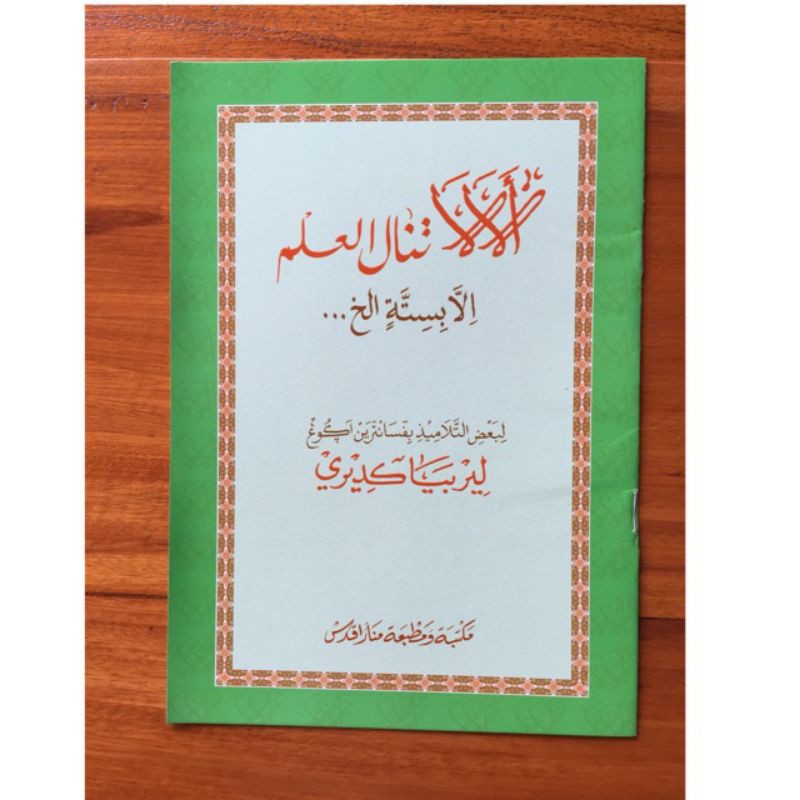 أَلَا لَا تنال العلم
اِلَّا بِسِتَّةٍ الخ ...
لِبَعْضِ التَّلَامِيْذِ بِفَسَانْتَرَيْن اَڮُوْڠْ
لِيْرْبَيَا كَدِيْرِيْ
مكتبة ومطبعة منارا قدس